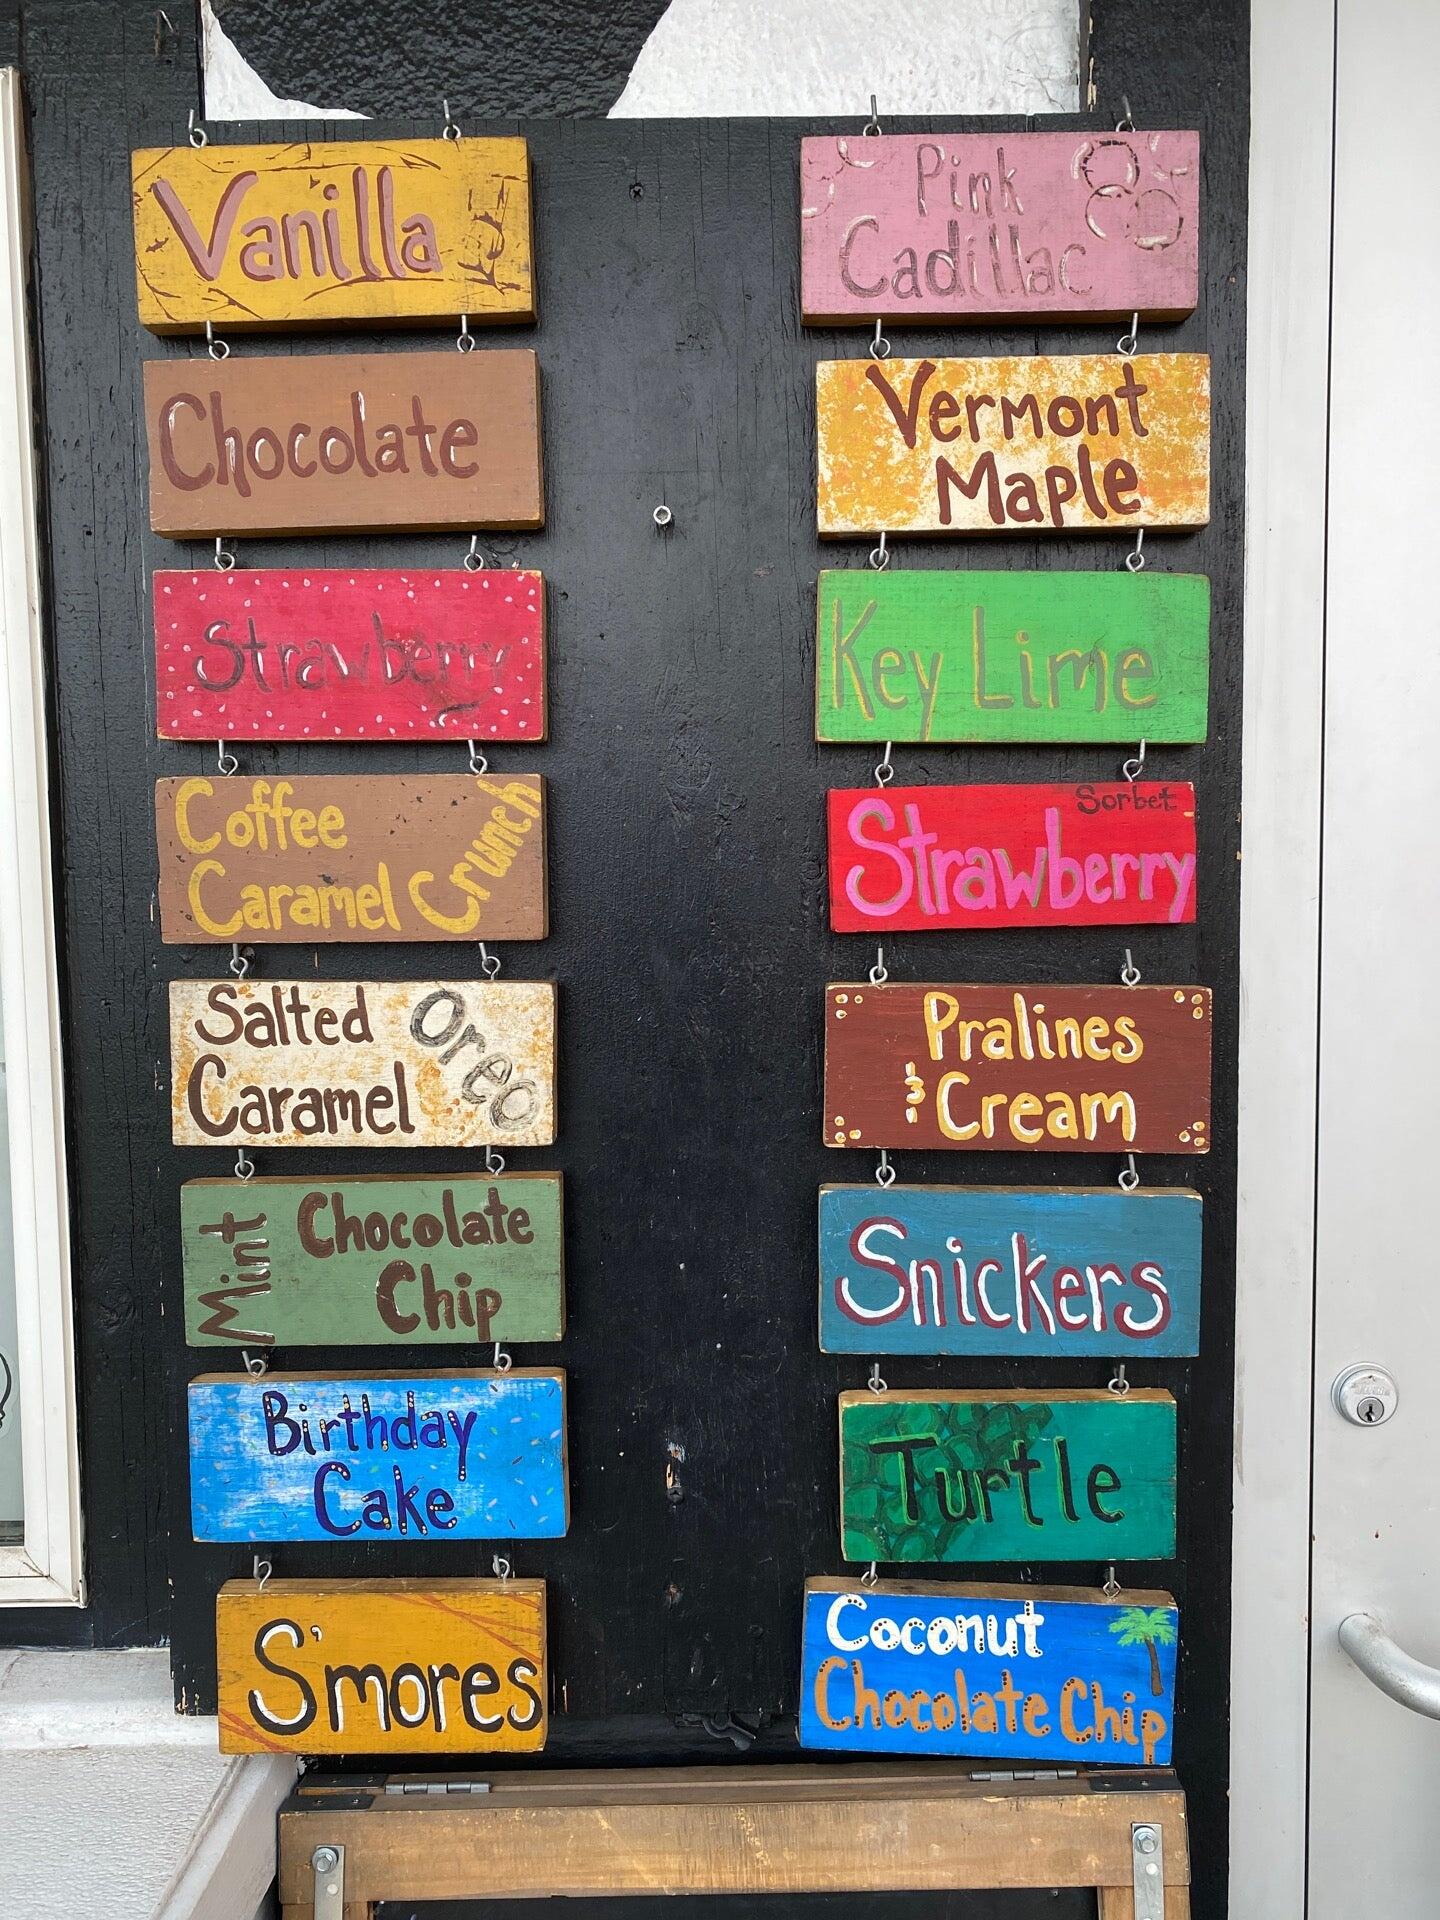 Vanilla
Chocolate
Strawberry
Coffee
Caramel Crunch
Salted
Caramel
Oreo
Mint
Chocolate
Chip
Birthday
Cake
S'mores
Pink
Cadillac
Vermont
Maple
Key Lime
Sorbet
Strawberry
Pralines
& Cream
Snickers
Turtle
Coconut
Chocolate Chip